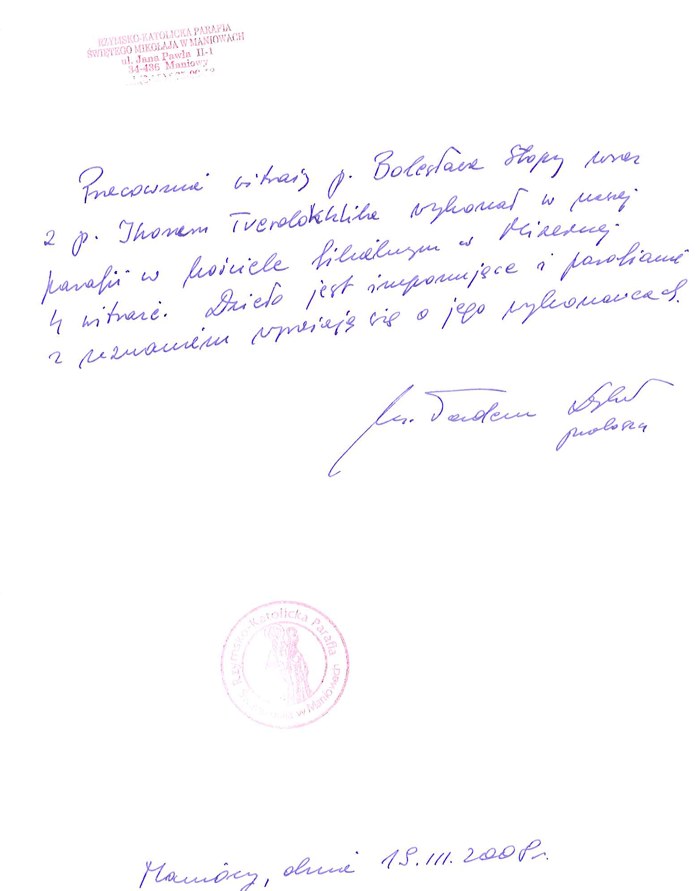 RZYMSKO-KATOLICKA PARAFIA
ŚWIĘTEGO MIKOŁAJA W MANIOWACH
ul. Jana Pawła II-1
34-436 Maniowy
Pracownia witraży p. Bolesława Szopy wraz
z p. Ihorem wykonał w naszej
parafii w kościele filialnym w Mizernej
4 witraże. Dzieło jest imponujące i parafianie
z uznaniem wyrażają się o jego wykonawcach.
ks. Tadeusz Dybeł
proboszcz
Rzymsko-Katolicka Parafia
Maniowy, dnia 19.III.2008r.